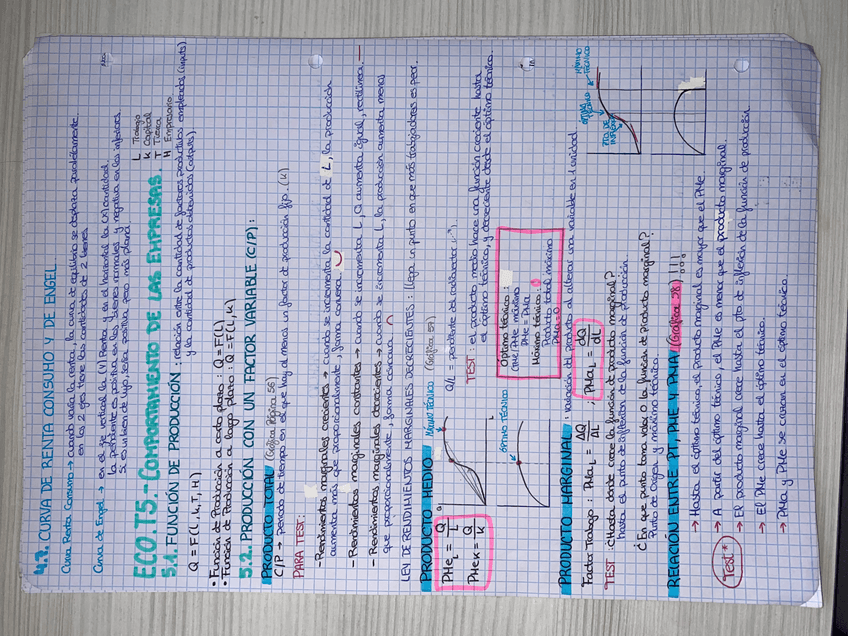 4.7. CURVA DE RENTA CONSUMO Y DE ENGEL
Curva Renta Consumo → cuando varía la renta, la curva de equilibrio se desplaza paralelamente
en los 2 ejes tiene las cantidades de 2 bienes
Curva de Engel → en el eje vertical la (Y) Renta y en el horizontal la (X) cantidad.
la pendiente es positiva en los bienes normales y negativa en los inferiores.
Si es un bien de lujo, sería positiva pero más plana.
ECO.T5.- COMPORTAMIENTO DE LAS EMPRESAS.
L Trabajo
K Capital
T Tierra
H Empresario
5.1. FUNCIÓN DE PRODUCCIÓN: relación entre la cantidad de factores productivos empleados (inputs)
y la cantidad de productos obtenidos (outputs)
Q = F(L, K, T, H)
• Función de Producción a corto plazo: Q = F(L)
• Función de Producción a largo plazo: Q = F(L, K)
5.2. PRODUCCIÓN CON UN FACTOR VARIABLE (C/P):
PRODUCTO TOTAL (Gráfica Página 56)
C/P → periodo de tiempo en el que hay al menos un factor de producción fijo. (K)
PARA TEST:
- Rendimientos marginales crecientes → cuando se incrementa la cantidad de L, la producción
aumenta más que proporcionalmente, forma convexa
- Rendimientos marginales constantes → cuando se incrementa L, Q aumenta igual, rectilínea. —
- Rendimientos marginales decrecientes → cuando se incrementa L, la producción aumenta menos
que proporcionalmente, forma cóncava
LEY DE RENDIMIENTOS MARGINALES DECRECIENTES: llega un punto en que más trabajadores es peor.
PRODUCTO MEDIO (Gráfica 57)
MÁXIMO TÉCNICO
PMe L = Q/L
PMe K = Q/K
Q/L = pendiente del radiovector
TEST: el producto medio hace una función creciente hasta
el óptimo técnico, y decreciente desde el óptimo técnico.
ÓPTIMO TÉCNICO
Óptimo técnico:
PMe máximo
PMe = PMa
Máximo técnico:
Producto total máximo
PMa = 0
PRODUCTO MARGINAL: variación del producto al alterar una variable en 1 unidad
Factor Trabajo: PMa L = ΔQ/ΔL ; PMa L = dQ/dL
TEST: ¿Hasta donde crece la función de producto marginal?
hasta el punto de inflexión de la función de producción.
¿En que punto toma valor 0 la función de producto marginal?
Punto de Origen y máximo técnico
ÓPTIMO TÉCNICO
MÁXIMO TÉCNICO
PTO DE INFLEXIÓN
RELACIÓN ENTRE PT, PME Y PMA (Gráfica 58) !!!
→ Hasta el óptimo técnico, el producto marginal es mayor que el PMe.
Test*
→ A partir del óptimo técnico, el PMe es menor que el producto marginal.
→ El producto marginal crece hasta el pto de inflexión de la función de producción
→ El PMe crece hasta el óptimo técnico.
→ PMa y PMe se cortan en el óptimo técnico.